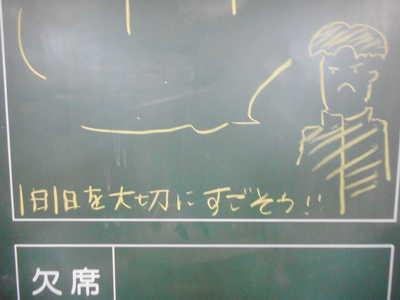 1日1日を大切にすごそう!!
欠席